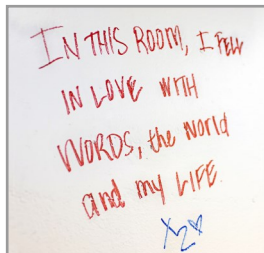 IN THIS ROOM, I FELL
IN LOVE WITH
WORDS, the world
and my LIFE.